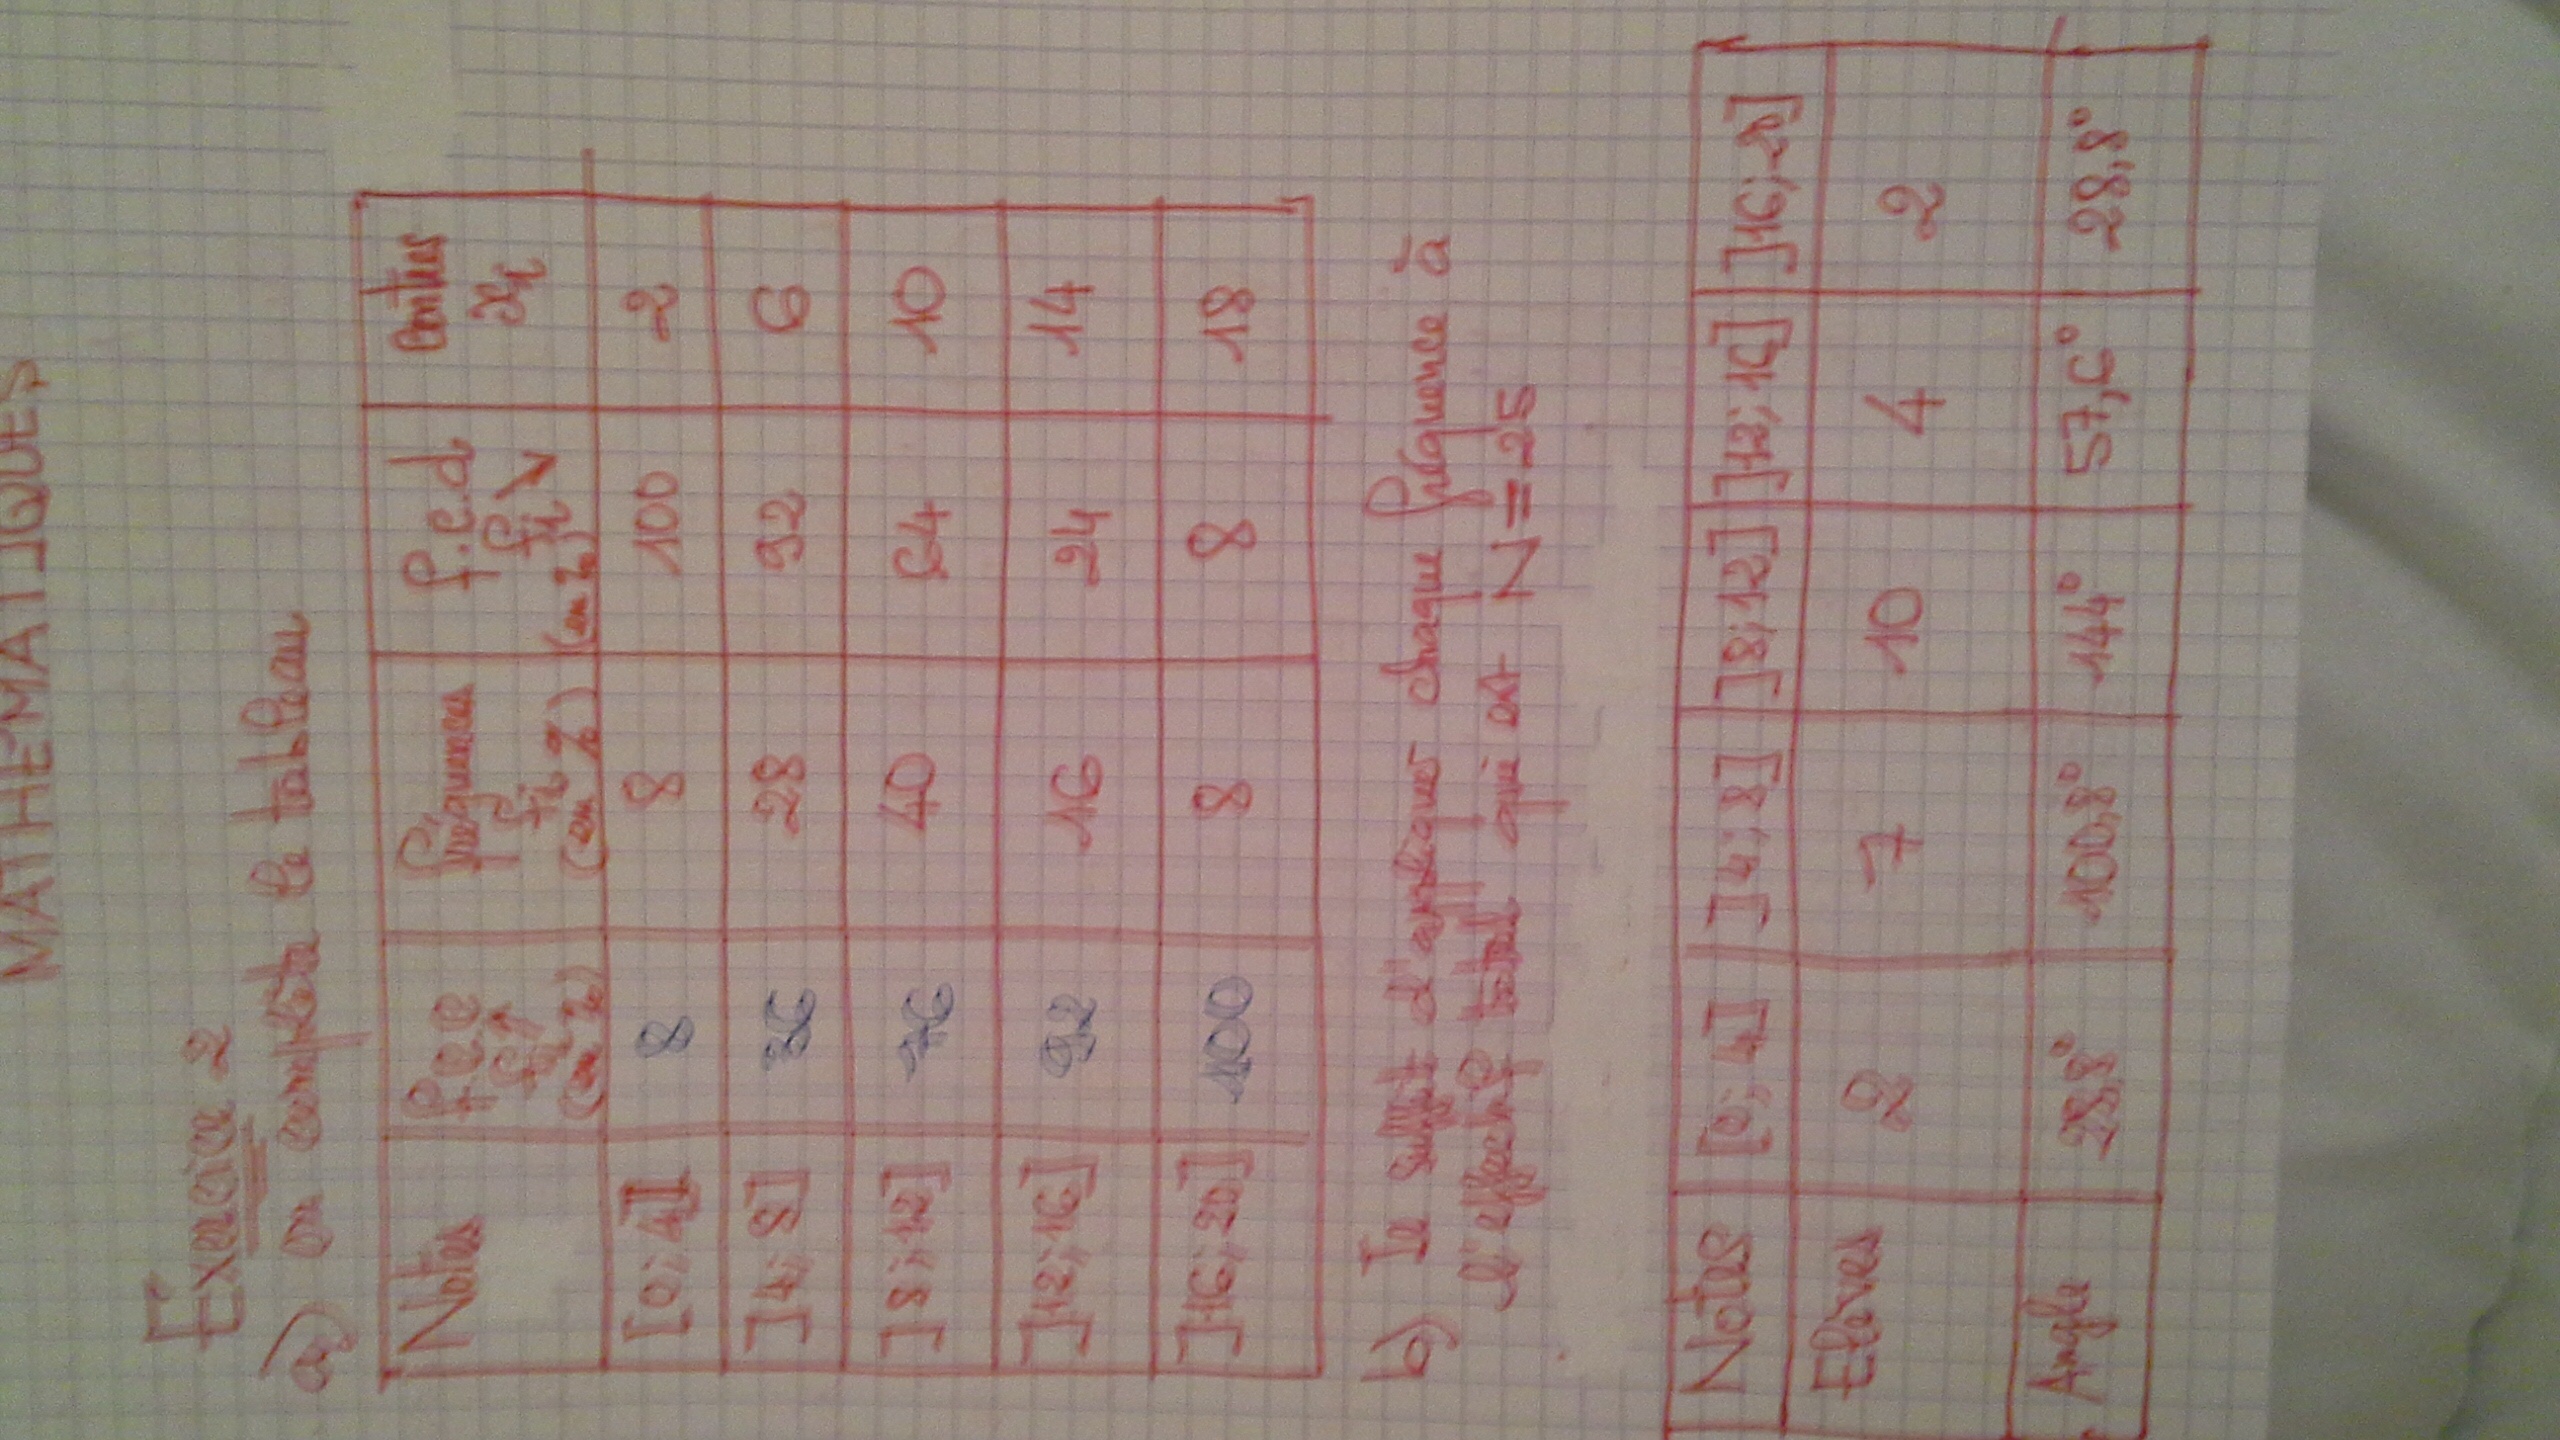 MATHÉMATIQUES
Exercice 2
a) on complète le tableau
Notes f.c.c fi↗ (en %) fréquences fi (en %) f.c.d fi↘ (en %) centres xi
[0; 4] 8 8 100 2
]4; 8] 36 28 92 6
]8; 12] 76 40 64 10
]12; 16] 92 16 24 14
]16; 20] 100 8 8 18
b) Il suffit d'appliquer chaque fréquence à
l'effectif total qui est N = 25
Notes [0; 4] ]4; 8] ]8; 12] ]12; 16] ]16; 20]
Elèves 2 7 10 4 2
Angle 28,8° 100,8° 144° 57,6° 28,8°